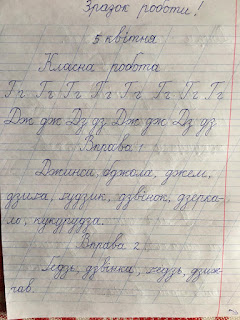 Зразок роботи!
5 квітня
Класна робота
Гг Гг Гг Гг Гг Гг Гг Гг
Дж дж Дз дз Дж дж Дз дз
Вправа 1
Джинси, бджола, джем,
дзиґа, ґудзик, дзвінок, дзерка-
ло, кукурудза.
Вправа 2
ґедзь, дзвінка, ґедзь, дзиж-
чав.